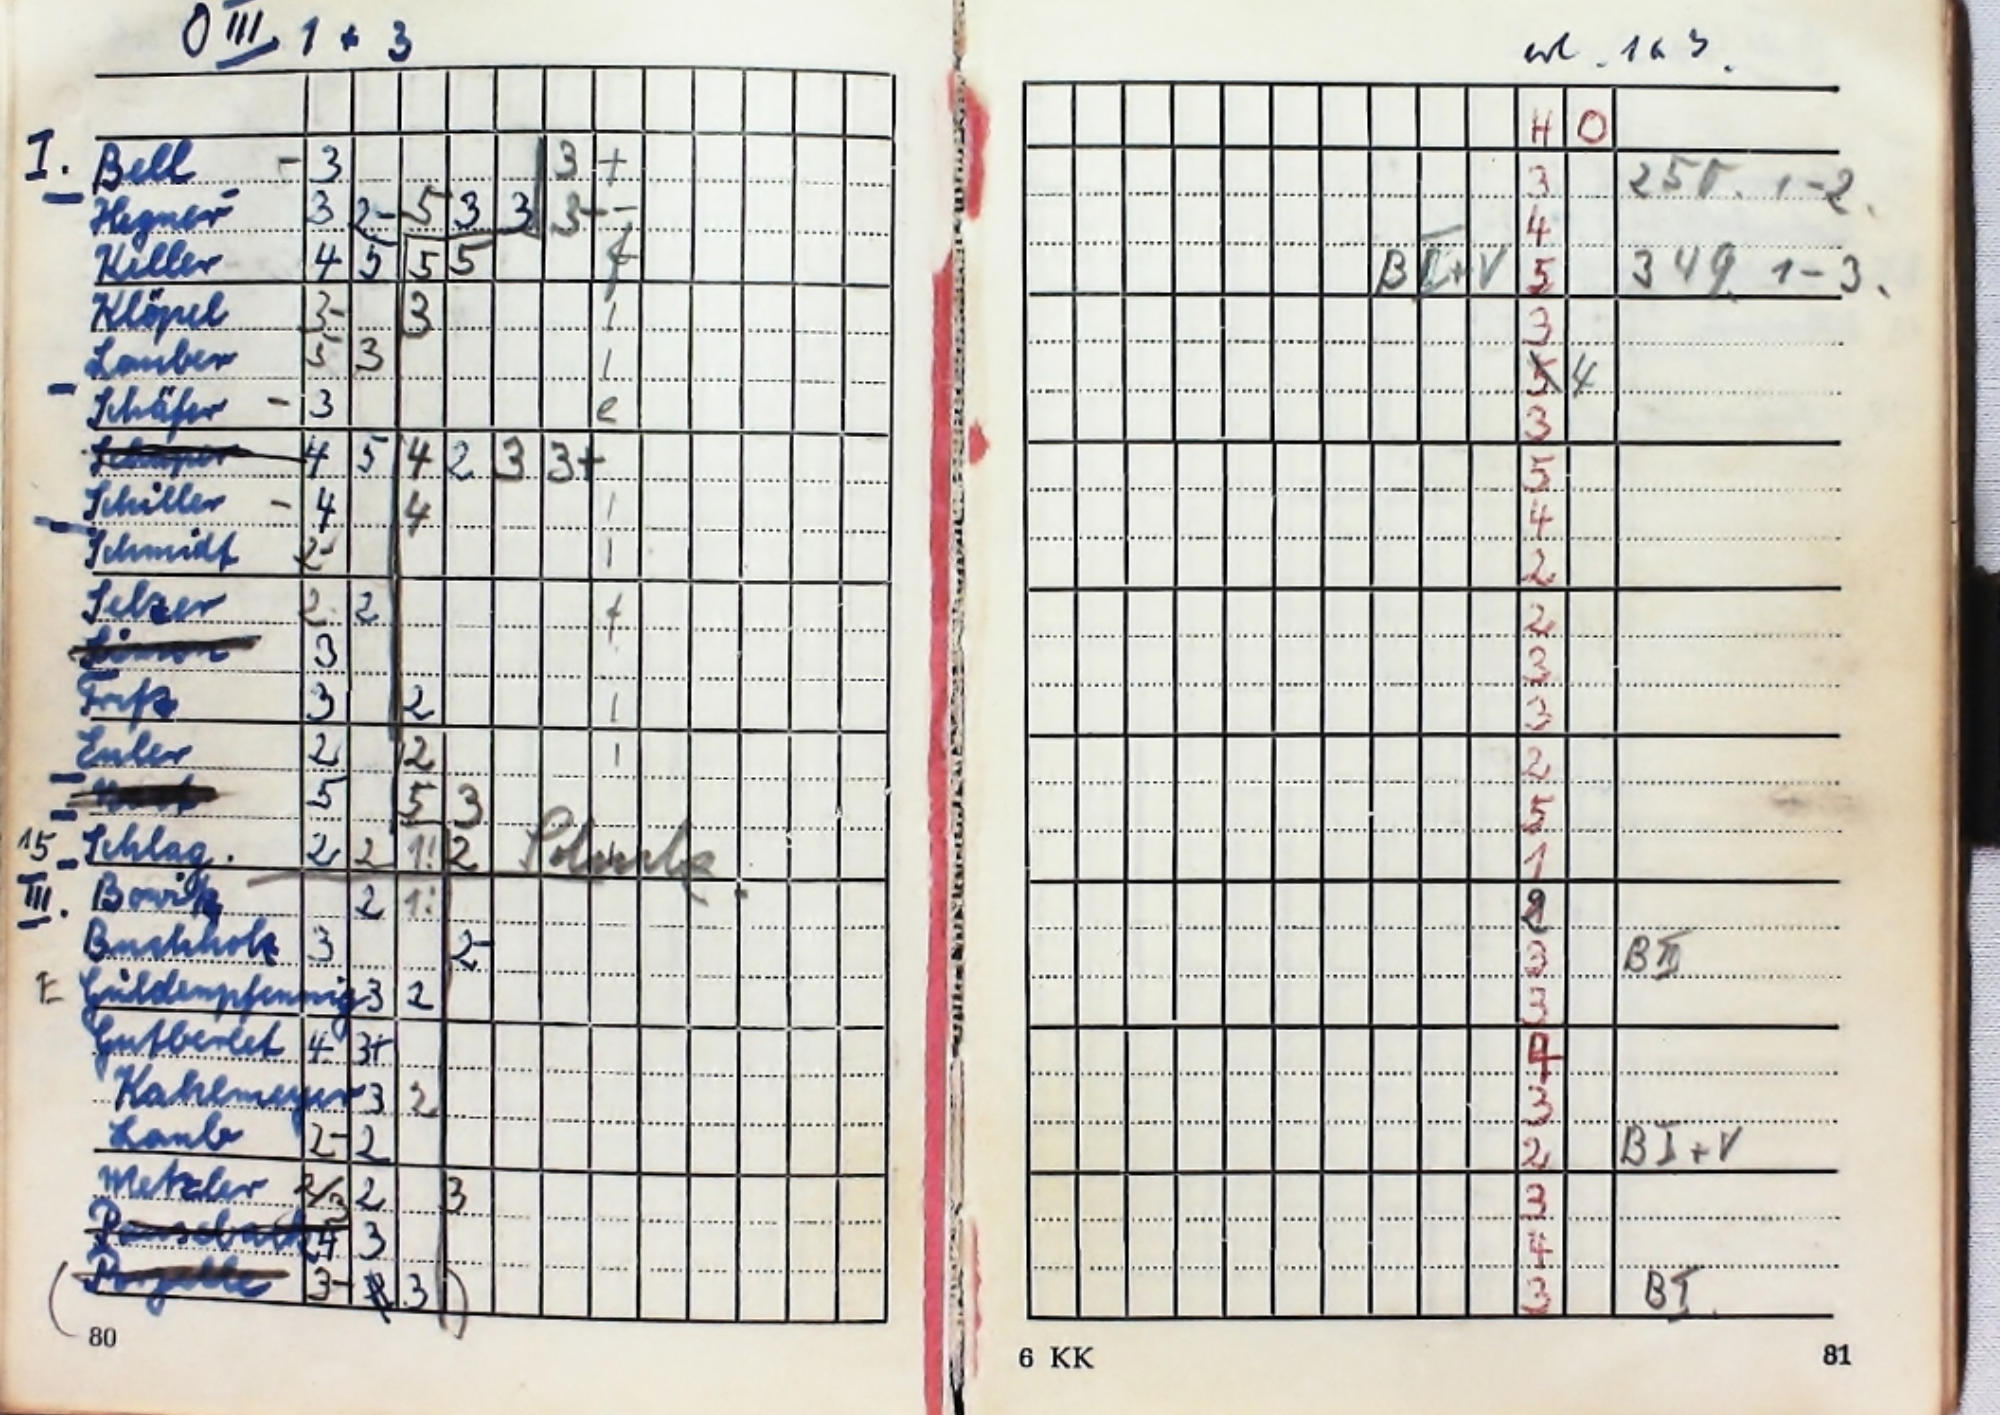 O III 1 + 3
I. Bell - 3 3 +
Hegner 3 2- 5 3 3 3--
Killer 4 5 5 5 +
Klöpel 3- 3 1
Lauber 5 3 1
Schäfer - 3 e
4 5 4 2 3 3+
Schiller - 4 4 1
Schmidt 2- 1
Selzer 2- 2 +
Simon 3
3 2 1
Euler 2 2 1
5 5 3
15 Schlag. 2 2 1! 2
III. 2 1!
Buchholz 3 2-
Güldenpfennig 3 2
Gutberlet 4 3+
Kahlmeyer 3 2
Laub 2- 2
Metzler 2/3 2 3
Pausebach 4 3
( 3- 3 )
80
1 3.
H O
3 1-2.
4
B II+V 5 349 1-3.
3
5 4
3
5
4
2
2
3
3
2
5
1
2
3 B II
3
4
3
2 B I+V
3
4
3 B I.
6 KK
81